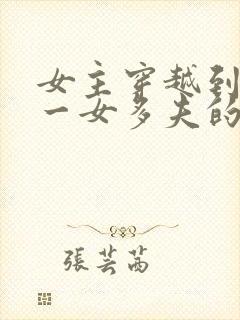 女主穿越到
一女多夫的
張芸茜